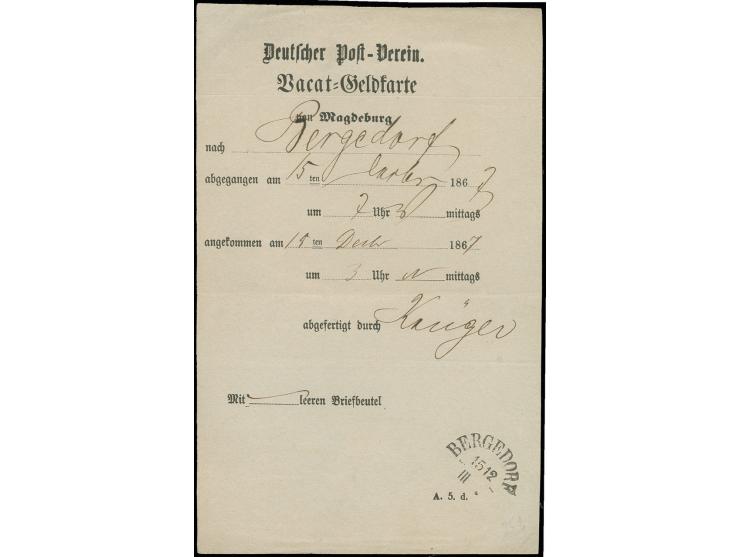 Deutscher Post-Verein.
Vacat-Geldkarte
von Magdeburg
nach Bergedorf
abgegangen am 15 ten 1867
um 7 Uhr mittags
angekommen am 15 ten Decbr 1867
um 3 Uhr N mittags
abgefertigt durch Krüger
Mit leeren Briefbeutel
BERGEDORF
15 12
III
A. 5. d.